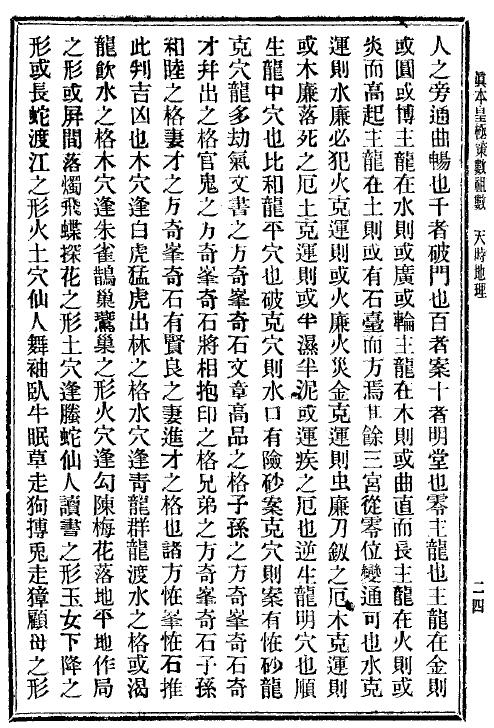 眞本皇極策數祖數　天時地理
二四
人之旁通曲暢也千者破門也百者案十者明堂也零主龍也主龍在金則
或圓或博主龍在水則或廣或輪主龍在木則或曲直而長主龍在火則或
炎而高起主龍在土則或有石臺而方焉其餘三宮從零位變通可也水克
運則水廉必犯火克運則或火廉火災金克運則虫廉刀釼之厄木克運則
或木廉落死之厄土克運則或半濕半泥或運疾之厄也逆生龍明穴也順
生龍中穴也比和龍平穴也破克穴則水口有險砂案克穴則案有恠砂龍
克穴龍多劫氣文書之方奇峯奇石文章高品之格子孫之方奇峯奇石奇
才幷出之格官鬼之方奇峯奇石將相抱印之格兄弟之方奇峯奇石子孫
和睦之格妻才之方奇峯奇石有賢良之妻進才之格也諸方恠峯恠石推
此判吉凶也木穴逢白虎猛虎出林之格水穴逢靑龍群龍渡水之格或渴
龍飮水之格木穴逢朱雀鵲巢鸞巢之形火穴逢勾陳梅花落地平地作局
之形或屛間落燭飛蝶探花之形土穴逢螣蛇仙人讀書之形玉女下降之
形或長蛇渡江之形火土穴仙人舞袖臥牛眠草走狗搏兎走獐顧母之形